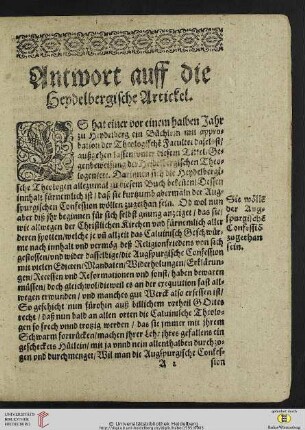 Antwort auff die
Heydelbergische Artickel.
ES hat einer vor einem halben Jahr
zu Heydelberg ein Büchlein mit appro
bation der Theologischē Facultet daselbst/
außgehen lassen/ unter diesem Tittel/ Ge-
genbeweisung der Heydelbergischen Theo
logen/etc. Darinnen sich die Heydelbergi-
sche Theologen allezumal zu diesem Buch bekennt: Dessen
innhalt fürnemlich ist/ daß sie kurzumb abermaln der Aug-
spurgischen Confession wöllen zugethan sein. Ob wol nun
aber diß ihr beginnen für sich selbst gnung anzeiget/ das sie/
wie allweg der Christlichen Kirchen und fürnemlich aller
deren spotten/welche je uñ allzeit das Calvinisch Geschwür-
me nach innhalt und vermög deß Religionfriedens von sich
gestossen/und wider dasselbige/die Augspurgische Confession
mit vielen Edicten/Mandaten/Widerholungen/Erklärun
gen/Recessen und Reformationen und sonst/haben bewaren
müssen/doch gleichwol/dieweil es an der exequution fast all-
wegen erwunden/und manches gut Werck also ersessen ist/
So geschicht nun fürohin auß billichem vrtheil Gottes
recht/daß nun bald an allen orten die Calvinische Theolo-
gen so frech unnd trotzig werden/ das sie jmmer mit jhrem
Schwarm fortrücken/machen jhrer Lehr jhres gefallens ein
geschecktes Hütlein/mit ja vnnd nein allenthalben durchzo-
gen und durchmenget/Wil man die Augspurgische Confes-
A 2
sion
Sie wölle
der Aug-
spurgischē
Confessiō
zugethan
sein.
© Universitätsbibliothek Heidelberg
UNIVERSITÄTS-
BIBLIOTHEK
HEIDELBERG
gefördert durch
Baden-Württemberg